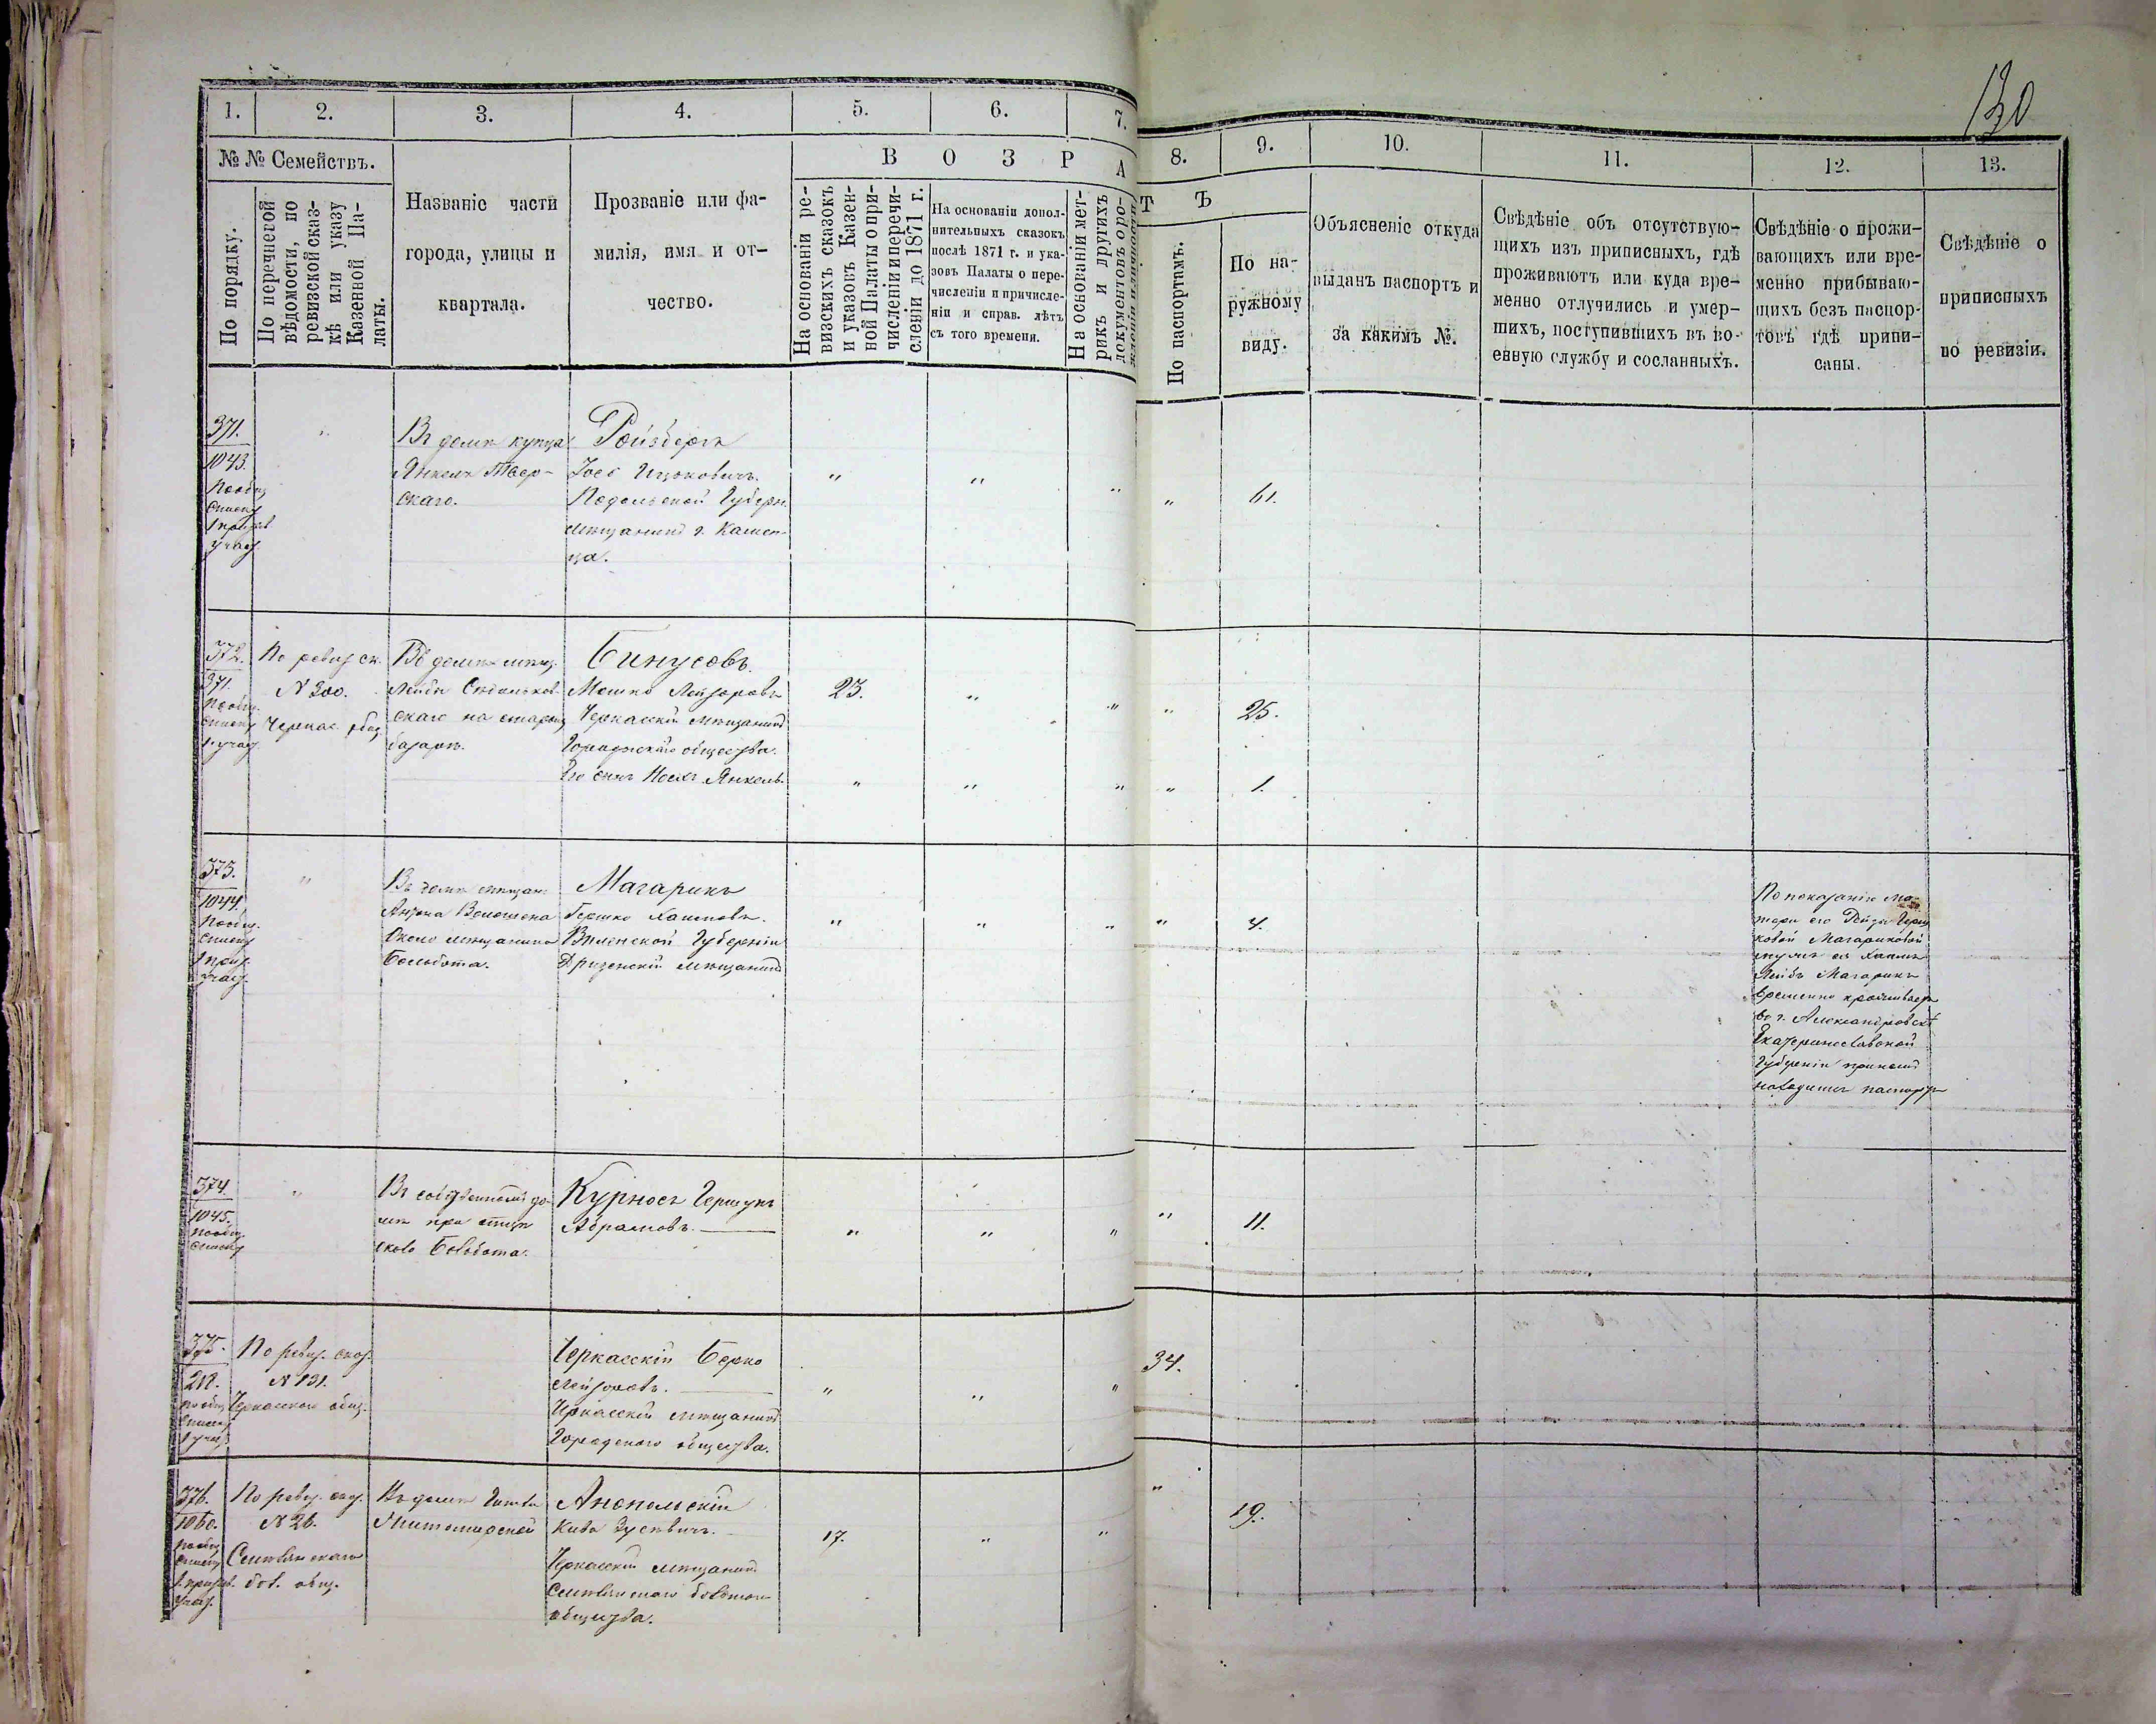 130
1. 2. 3. 4. 5. 6. 7. 8. 9. 10. 11. 12. 13.
№ № Семействъ.
По порядку.
По перечневой
вѣдомости, по
ревизской сказ-
кѣ или указу
Казенной Па-
латы.
Названіе части
города, улицы и
квартала.
Прозваніе или фа-
милія, имя и от-
чество.
В О З Р А Т Ъ
На основаніи ре-
визскихъ сказокъ
и указовъ Казен-
ной Палаты о при-
численіи и перечи-
сленіи до 1871 г.
На основаніи допол-
нительныхъ сказокъ
послѣ 1871 г. и ука-
зовъ Палаты о пере-
численіи и причисле-
ніи и справ. лѣтъ
съ того времени.
На основаніи мет-
рикъ и другихъ
документовъ о ро-
По паспортамъ.
По на-
ружному
виду.
Объясненіе откуда
выданъ паспортъ и
за какимъ №.
Свѣдѣніе объ отсутствую-
щихъ изъ приписныхъ, гдѣ
проживаютъ или куда вре-
менно отлучились и умер-
шихъ, поступившихъ въ во-
енную службу и сосланныхъ.
Свѣдѣніе о прожи-
вающихъ или вре-
менно прибываю-
щихъ безъ паспор-
товъ гдѣ припи-
саны.
Свѣдѣніе о
приписныхъ
по ревизіи.
371.
1043.
По общ.
списку
1 призыв.
учас.
"
Въ домѣ купца
Янкеля Твер-
скаго.
Ройзбергъ
Іосъ Ицковичъ.
Подольской Губерн.
мѣщанинъ г. Камен-
ца.
" " " " 61.
372.
371.
По общ.
списку
1 учас.
По ревиз ск.
№ 300.
Черкас. общ.
Въ домѣ мѣщ.
Лейбы
скаго на старом
базарѣ.
Бинусовъ.
Мошко Лейзоровъ
Черкасскій мѣщанинъ
Городскаго общества.
Его сынъ Янкель.
23. " " " 25.
" " " " 1.
373.
1044.
По общ.
списку
1 приз.
учас.
"
Въ домѣ мѣщан.
Антона Волошена
около мѣщанина
Магарикъ
Гершко Хаимовъ.
Виленской Губерніи
Дризенскій мѣщанинъ
" " " " 4.
По показанію ма-
тери его Рейзи Герш
ковой Магариковой
мужъ ея Хаимъ
Лейбъ Магарикъ
временно проживаетъ
въ г. Александровскѣ
Екатеринославской
Губерніи при немъ
находится паспортъ
374.
1045.
По общ.
списку
"
Въ собственномъ до-
мѣ при
Курносъ Гершунъ
Абрамовъ.
" " " " 11.
375.
218.
по общ.
списку
1 учас.
По ревиз. сказ.
№ 131.
Черкасскаго общ.
Черкасскій Берко
Лейзоровъ.
Черкасскій мѣщанинъ
Городскаго общества.
" " " 34.
376.
1060.
по общ.
списку
1. призыв.
учас.
По ревиз. сказ.
№ 26.
Смѣлянскаго
общ.
Въ домѣ
Житомирской
Анопольскій
Кива Зусевичъ.
Черкасскій мѣщанинъ
Смѣлянскаго
общества.
17. " " " 19.